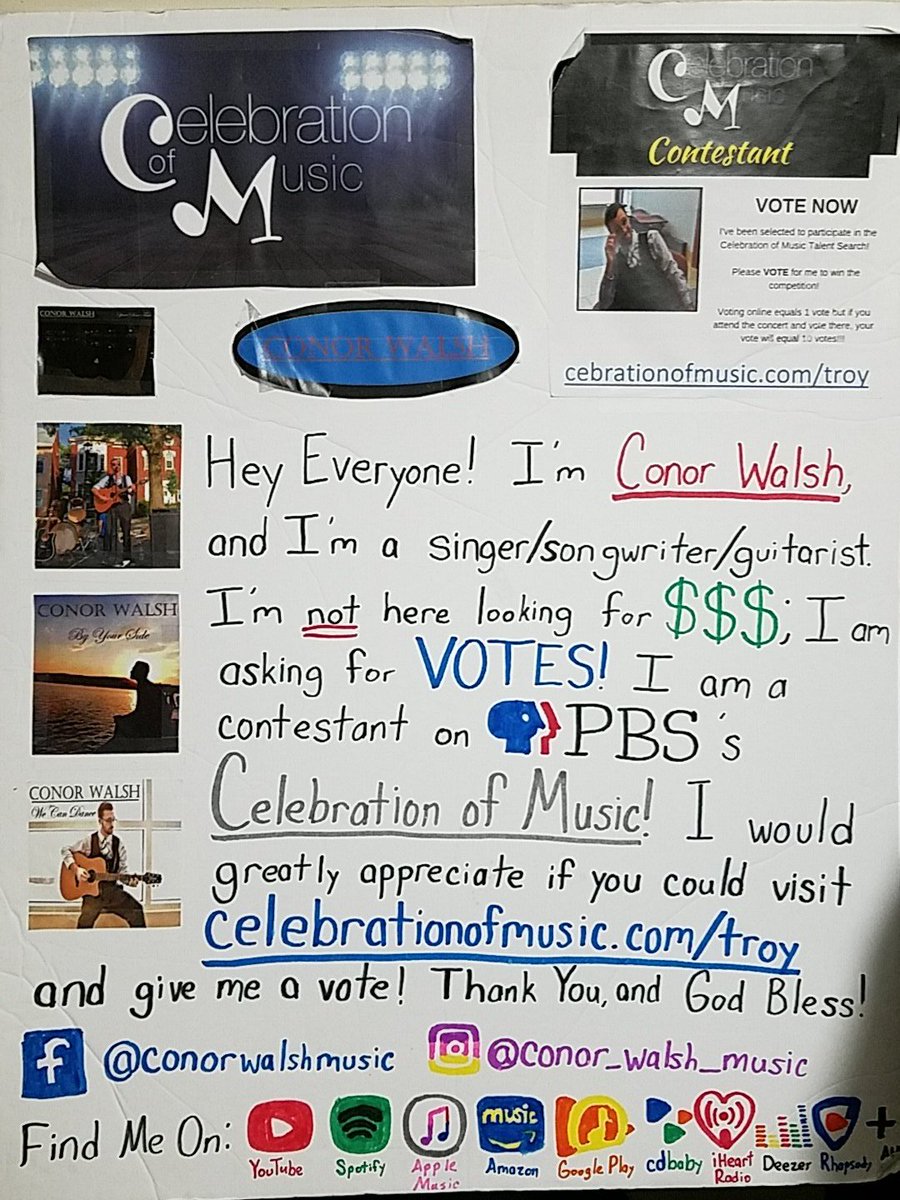 Celebration
of Music
Celebration
of Music
Contestant
VOTE NOW
I've been selected to participate in the
Celebration of Music Talent Search!
Please VOTE for me to win the
competition!
Voting online equals 1 vote but if you
attend the concert and vote there, your
vote will equal 10 votes!!!!
cebrationofmusic.com/troy
CONOR WALSH
CONOR WALSH
Hey Everyone! I'm Conor Walsh,
and I'm a singer/songwriter/guitarist.
I'm not here looking for $$$; I am
asking for VOTES! I am a
contestant on PBS's
Celebration of Music! I would
greatly appreciate if you could visit
celebrationofmusic.com/troy
and give me a vote! Thank You, and God Bless!
CONOR WALSH
By Your Side
CONOR WALSH
We Can Dance
f @conorwalshmusic @conor_walsh_music
Find Me On:
YouTube
Spotify
Apple
Music
music
Amazon
Google Play
cdbaby
iHeart
Radio
Deezer
Rhapsody
+